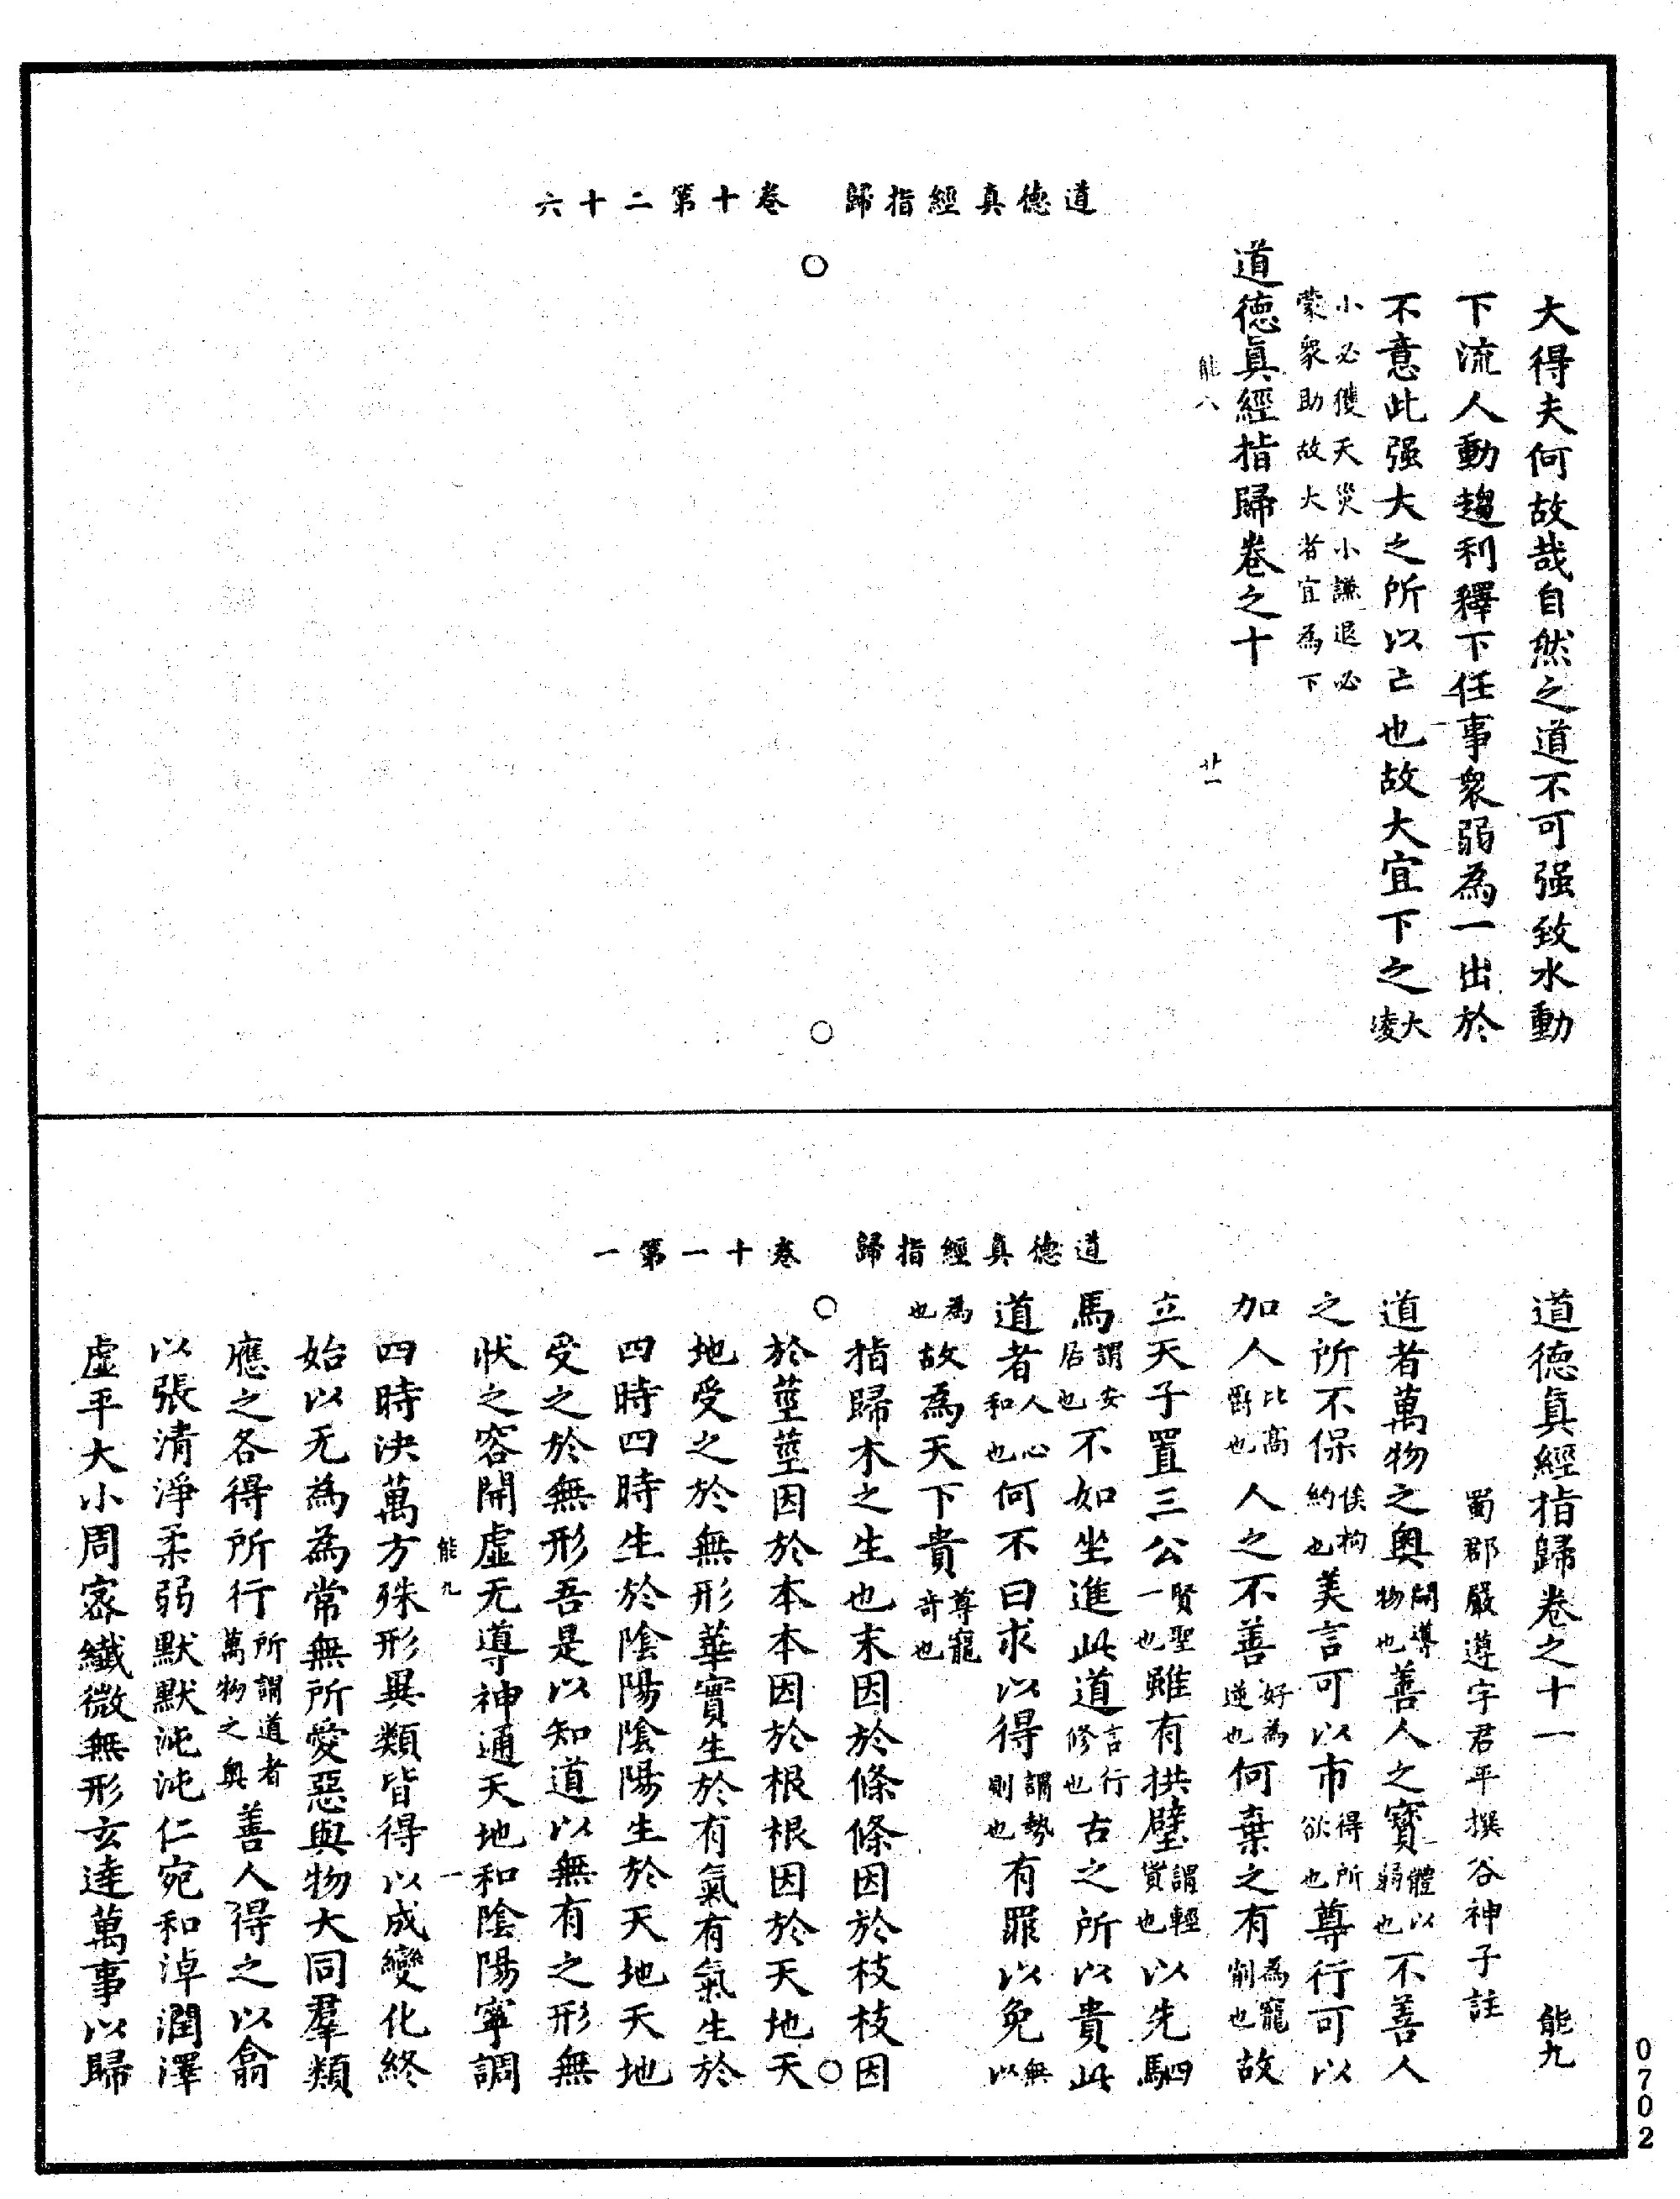 道德真經指歸　卷十第二十六
大得夫何故哉自然之道不可强致水動
下流人動趨利釋下任事衆弱為一出於
不意此强大之所以亡也故大宜下之大凌
小必獲天災小謙退必
蒙衆助故大者宜為下
道德眞經指歸卷之十
能八　廿一
道德真經指歸　卷十一第一
道德眞經指歸卷之十一　能九
蜀郡嚴遵字君平撰谷神子註
道者萬物之奧開導物也善人之寶體以弱也不善人
之所不保俟拘約也美言可以市得所欲也尊行可以
加人比高爵也人之不善好為逆也何棄之有為寵削也故
立天子置三公賢聖一也雖有拱璧謂輕貲也以先駟
馬謂安居也不如坐進此道言行修也古之所以貴此
道者人心和也何不曰求以得謂勢則也有罪以免無以
為也故為天下貴尊寵奇也
指歸木之生也末因於條條因於枝枝因
於莖莖因於本本因於根根因於天地天
地受之於無形華實生於有氣有氣生於
四時四時生於陰陽陰陽生於天地天地
受之於無形吾是以知道以無有之形無
狀之容開虛无導神通天地和陰陽寧調
能九　一
四時決萬方殊形異類皆得以成變化終
始以无為為常無所愛惡與物大同羣類
應之各得所行所謂道者萬物之奧善人得之以翕
以張清淨柔弱默默沌沌仁宛和淖潤澤
虛平大小周密纖微無形玄達萬事以歸
0702